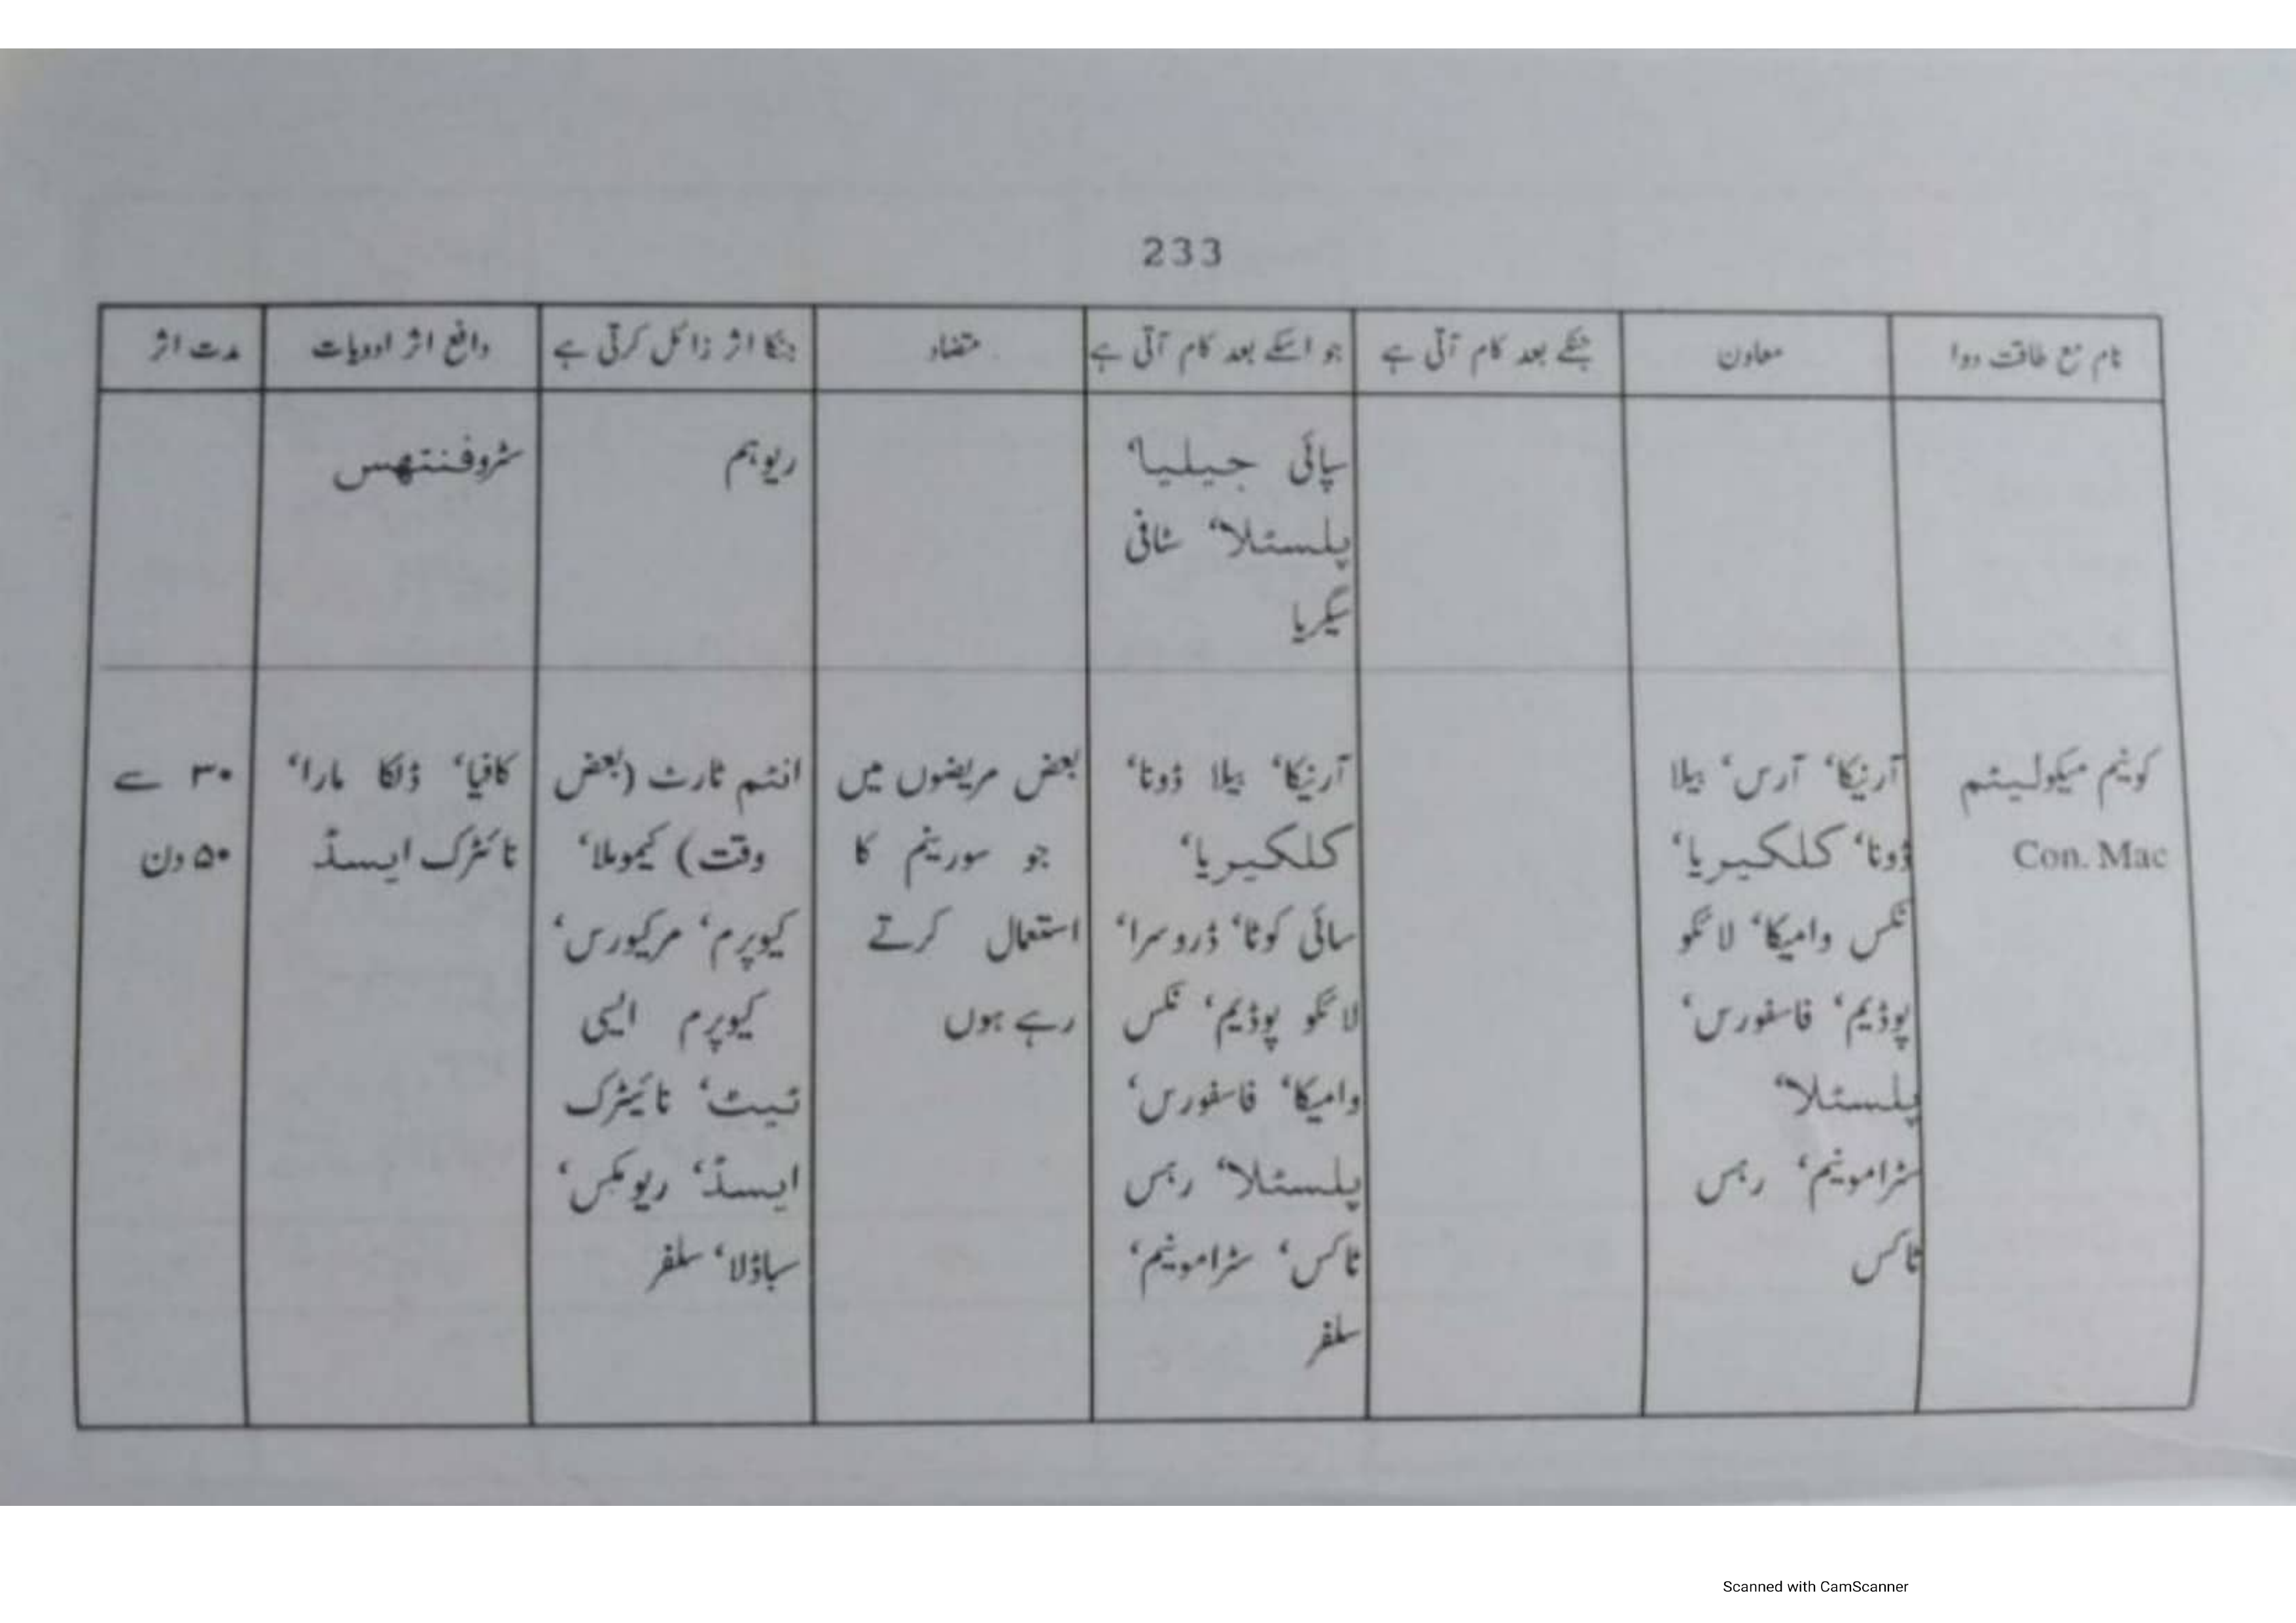 233
نام مع طاقت دوا
معاون
جنکے بعد کام آتی ہے
جو اسکے بعد کام آتی ہے
متضاد
جنکا اثر زائل کرتی ہے
دافع اثر ادویات
مدت اثر
سپائی جیلیا‘
پلسٹلا‘ سٹافی
سیگریا
ریوہم
سٹروفنتھس
کونیم میکولیٹم
Con. Mac
آرنیکا‘ آرس‘ بیلا
ڈونا‘ کلکیریا‘
نکس وامیکا‘ لائکو
پوڈیم‘ فاسفورس‘
پلسٹلا‘
سٹرامونیم‘ رہس
ٹاکس
آرنیکا‘ بیلا ڈونا‘
کلکیریا‘
سائی کوٹا‘ ڈروسرا‘
لائکو پوڈیم‘ نکس
وامیکا‘ فاسفورس‘
پلسٹلا‘ رہس
ٹاکس‘ سٹرامونیم‘
سلفر
بعض مریضوں میں
جو سورینم کا
استعمال کرتے
رہے ہوں
انٹم ٹارٹ (بعض
وقت) کیموملا‘
کیوپرم‘ مرکیورس‘
کیوپرم ایسی
ٹیٹ‘ نائیٹرک
ایسڈ‘ ریومکس‘
سباڈلا‘ سلفر
کافیا‘ ڈلکا مارا‘
نائٹرک ایسڈ
۳۰ سے
۵۰ دن
Scanned with CamScanner